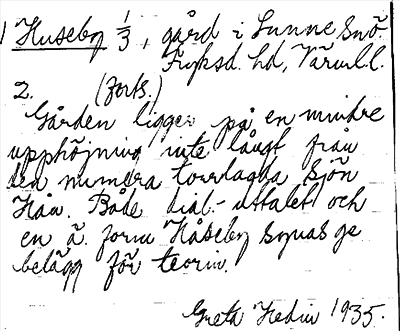 1 Huseby 1/3, gård i Sunne snö.
Fryksd. hd, Värml.l.
2. (forts.)
Gården ligger på en mindre
upphöjning inte långt från
den numera torrlagda sjön
Hån. Både dial.-uttalet och
en ä. form Håseby synas ge
belägg för teorin.
Greta Hedin 1935.